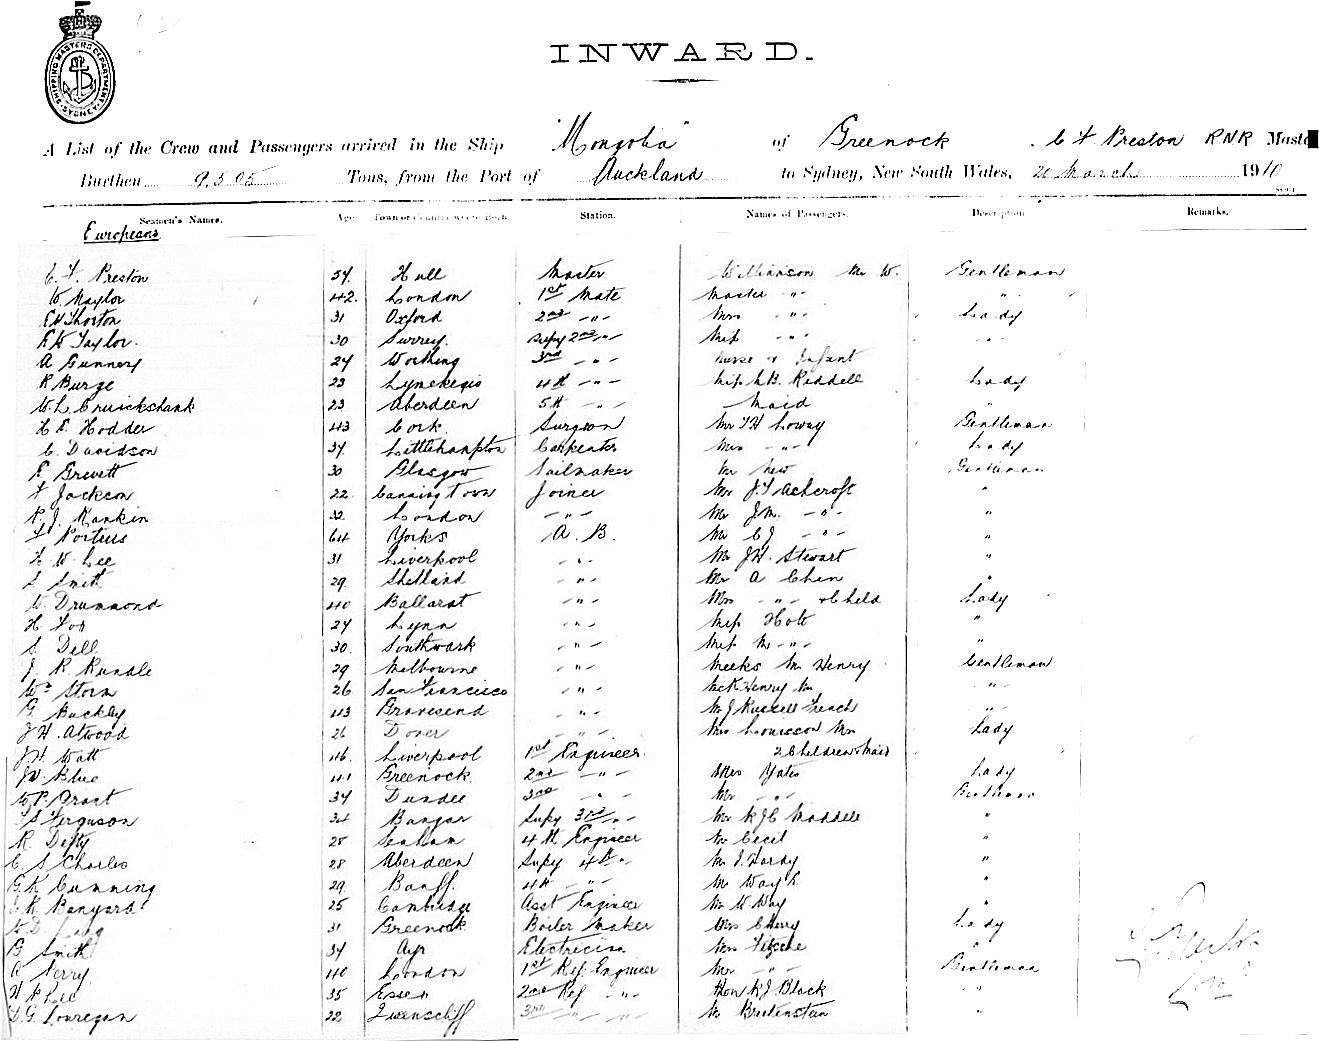 SHIPPING MASTERS DEPARTMENT SYDNEY
INWARD.
A List of the Crew and Passengers arrived in the Ship "Mongolia" of Greenock C F Preston RNR Master
Burthen 9505 Tons, from the Port of Auckland to Sydney, New South Wales, 2 March 1910
Seamen's Names. Age. Town or Country where Born. Station. Names of Passengers. Description Remarks.
Europeans
C. F. Preston 54 Hull Master Williamson Mr W. Gentleman
W. Naylor 42. London 1st Mate Master -"- "
E H Thorton 31 Oxford 2nd -"- Mrs -"- Lady
E W Taylor. 30 Surrey. Supy 2nd -"- Miss -"- -"-
A Gunnery 24 Worthing 3rd -"- nurse & Infant
R Burge 23 Lymeregis 4th -"- Miss L B. Riddell Lady
W. L. Cruickshank 23 Aberdeen 5th -"- Maid "
H E Hodder 43 Cork. Surgeon Mr T H Loway Gentleman
C. Davidson 34 Littlehampton Carpenter Mrs -"- Lady
E Grevett 30 Glasgow Sailmaker Mr New Gentleman
F Jackson 22 Canningtown Joiner Mr J. T Ashcroft "
R. J. Rankin 32 London -"- Mr J M. -"- "
T Porteus 64 Yorks A. B. Mr C J -"- "
H W. Lee 31 Liverpool -"- Mr J H. Stewart "
S Smith 29. Shetland -"- Mr A Chin "
W. Drummond 40 Ballarat -"- Mrs -"- & Child Lady
H Fox 24 Lynn -"- Miss Holt "
S. Dell 30. Southwark -"- Miss M -"- "
J. R. Rundle 29 Melbourne -"- Meeks Mr Henry Gentleman
Wm Storm 26 San Francisco -"- McK Henry Mr -"-
G Buckley 43 Gravesend -"- Mr J Russell French -"-
J H. Atwood 26 Dover -"- Mrs Louisson Mrs Lady
J H. Watt 46. Liverpool 1st Engineer. 2 Children & Maid
J W. Blue 41 Greenock. 2nd -"- Mrs Yates Lady
W. P. Grant 34 Dundee 3rd " Mr -"- Gentleman
T S Ferguson 34 Bangor Supy 3rd -"- Mr R J C Maddell "
R. Defty 25 Seaham 4th Engineer Mr Cecil "
C. S Charles 28 Aberdeen Supy 4th " Mr J. Hardy "
G. K Cumming 29. Banff. 4th -"- Mr Way "
R Banyard 25 Cambridge Asst Engineer Mr W. Way "
W D 31 Greenock Boiler Maker Mrs Cherry Lady
B Smith 34 Ayr Electrician Mrs "
A Terry 40 London 1st Ref. Engineer Mr -"- Gentleman
H R Lee 35 Essex 2nd Ref -"- Hon R J Black -"-
D. G. Lonregan 22 Queenscliff 3rd -"- -"- Mr "